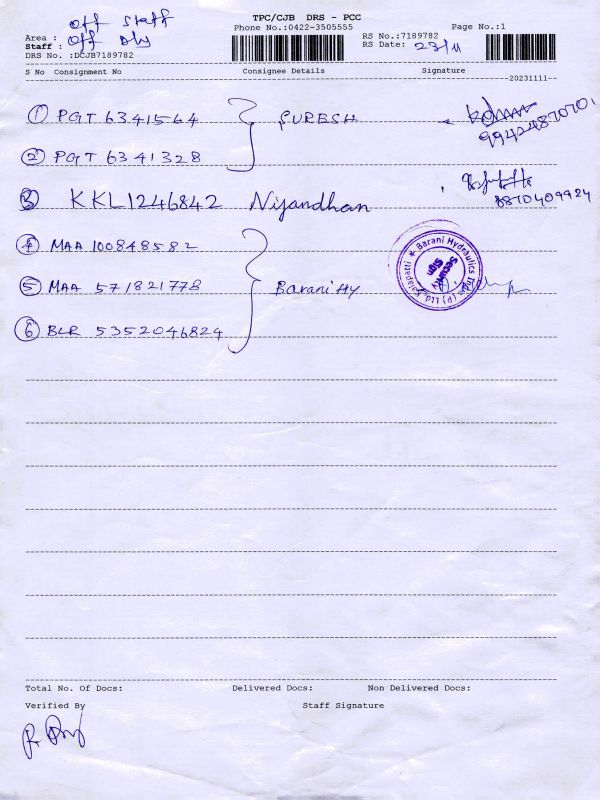 TPC/CJB DRS - PCC
Phone No.:0422-3505555
Page No.:1
Off Staff
Area : Off Dly
Staff :
DRS No. :DCJB7189782
RS No.:7189782
RS Date: 23/11
S No Consignment No Consignee Details Signature
20231111
1 PGT 6341564 SURESH
9942487070
2 PGT 6341328
3 KKL1246842 Nijandhan
8870409924
4 MAA 100848582
Barani Hydraulics India (P) Ltd.
Security Sign
5 MAA 571821778 Barani Hy
6 BLR 5352046824
Total No. Of Docs: Delivered Docs: Non Delivered Docs:
Verified By Staff Signature